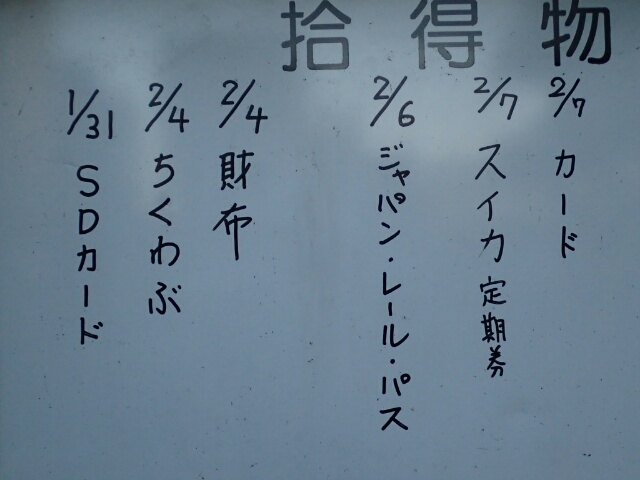 拾得物
2/7 カード
2/7 スイカ定期券
2/6 ジャパン・レール・パス
2/4 財布
2/4 ちくわぶ
1/31 SDカード